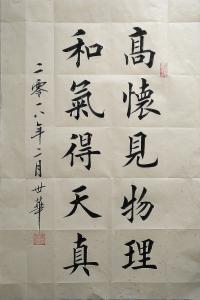 高懷見物理
和氣得天真
二零一八年二月世華